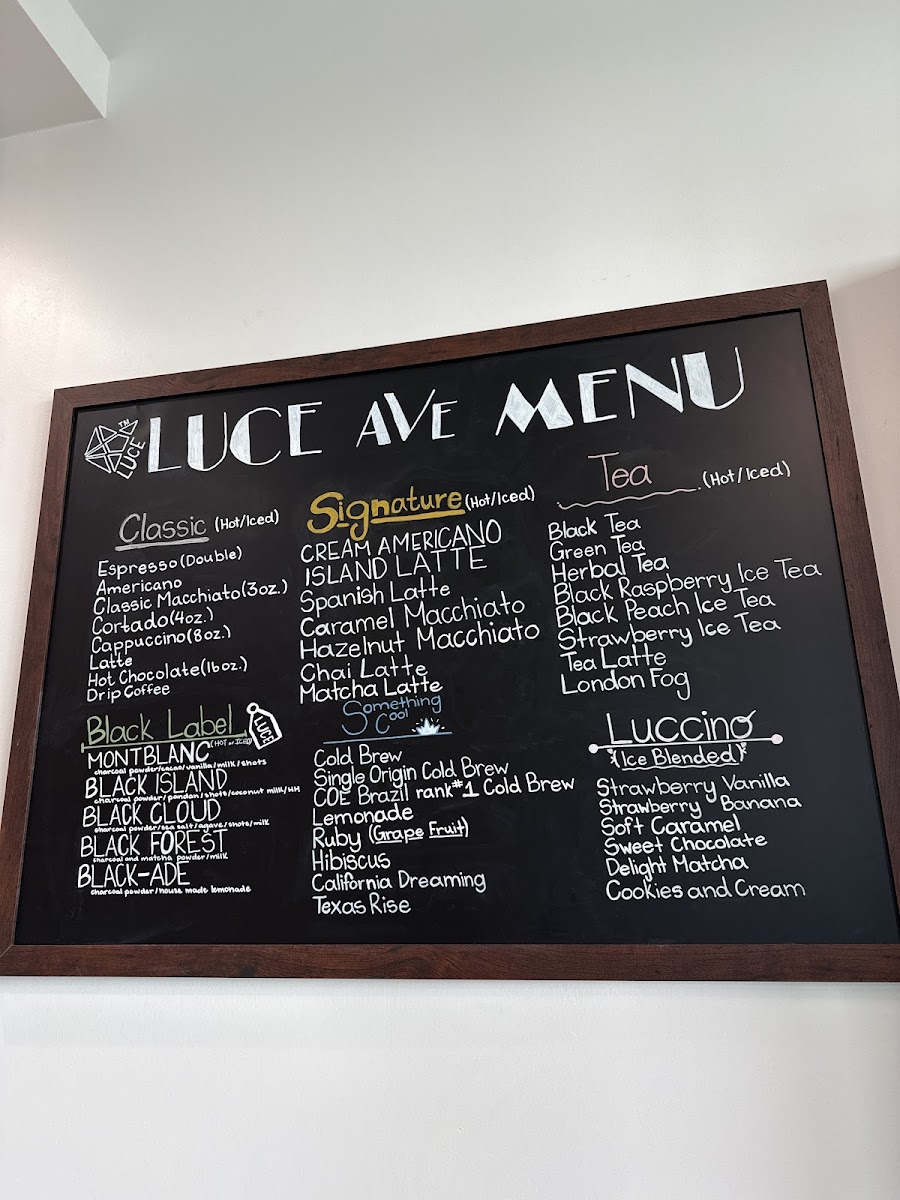 LUCE™
LUCE AVE MENU
Classic (Hot/Iced)
Espresso (Double)
Americano
Classic Macchiato (3oz.)
Cortado (4oz.)
Cappuccino (8oz.)
Latte
Hot Chocolate (16oz.)
Drip Coffee
Signature (Hot/Iced)
CREAM AMERICANO
ISLAND LATTE
Spanish Latte
Caramel Macchiato
Hazelnut Macchiato
Chai Latte
Matcha Latte
Tea (Hot/Iced)
Black Tea
Green Tea
Herbal Tea
Black Raspberry Ice Tea
Black Peach Ice Tea
Strawberry Ice Tea
Tea Latte
London Fog
Black Label (HOT or ICED)
LUCE
MONTBLANC
charcoal powder/cacao/vanilla/milk/shots
BLACK ISLAND
charcoal powder/pandan/shots/coconut milk/HH
BLACK CLOUD
charcoal powder/sea salt/agave/shots/milk
BLACK FOREST
charcoal and matcha powder/milk
BLACK-ADE
charcoal powder/house made lemonade
Something
Cool
Cold Brew
Single Origin Cold Brew
COE Brazil rank #1 Cold Brew
Lemonade
Ruby (Grape Fruit)
Hibiscus
California Dreaming
Texas Rise
Luccino
(Ice Blended)
Strawberry Vanilla
Strawberry Banana
Soft Caramel
Sweet Chocolate
Delight Matcha
Cookies and Cream